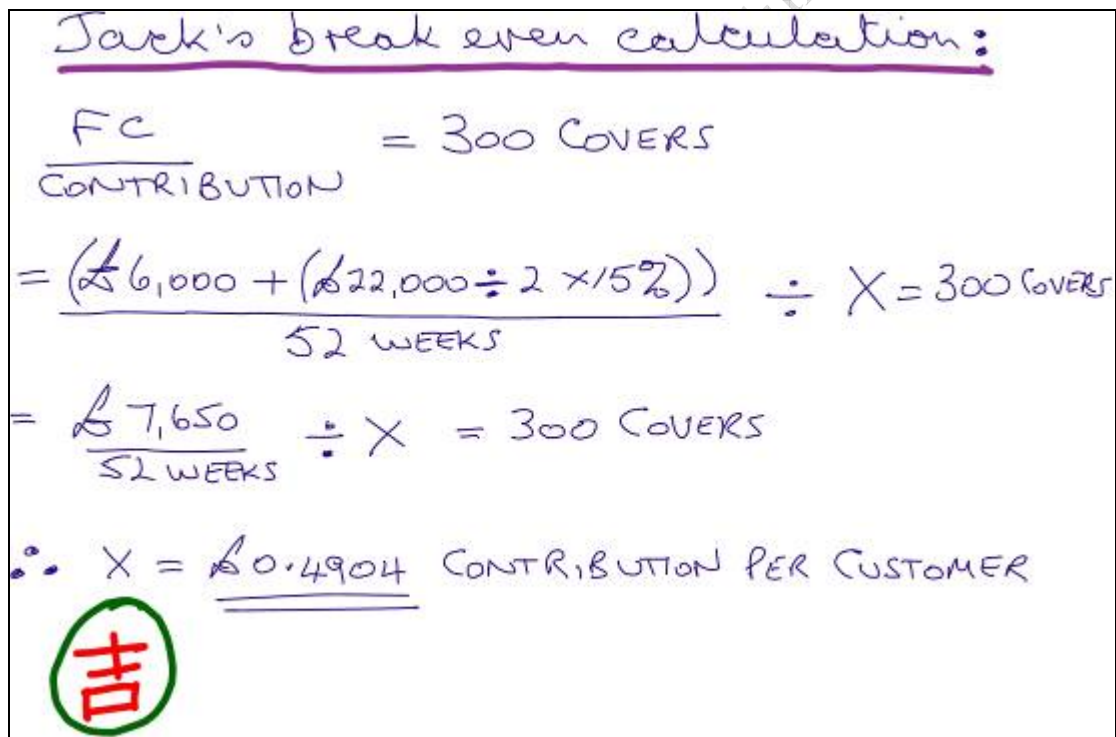 Jack's break even calculation:
FC
CONTRIBUTION
= 300 COVERS
= (£6,000 + (£22,000 ÷ 2 ×15%))
52 WEEKS
÷ X = 300 COVERS
= £7,650
52 WEEKS
÷ X = 300 COVERS
∴ X = £0.4904 CONTRIBUTION PER CUSTOMER
吉